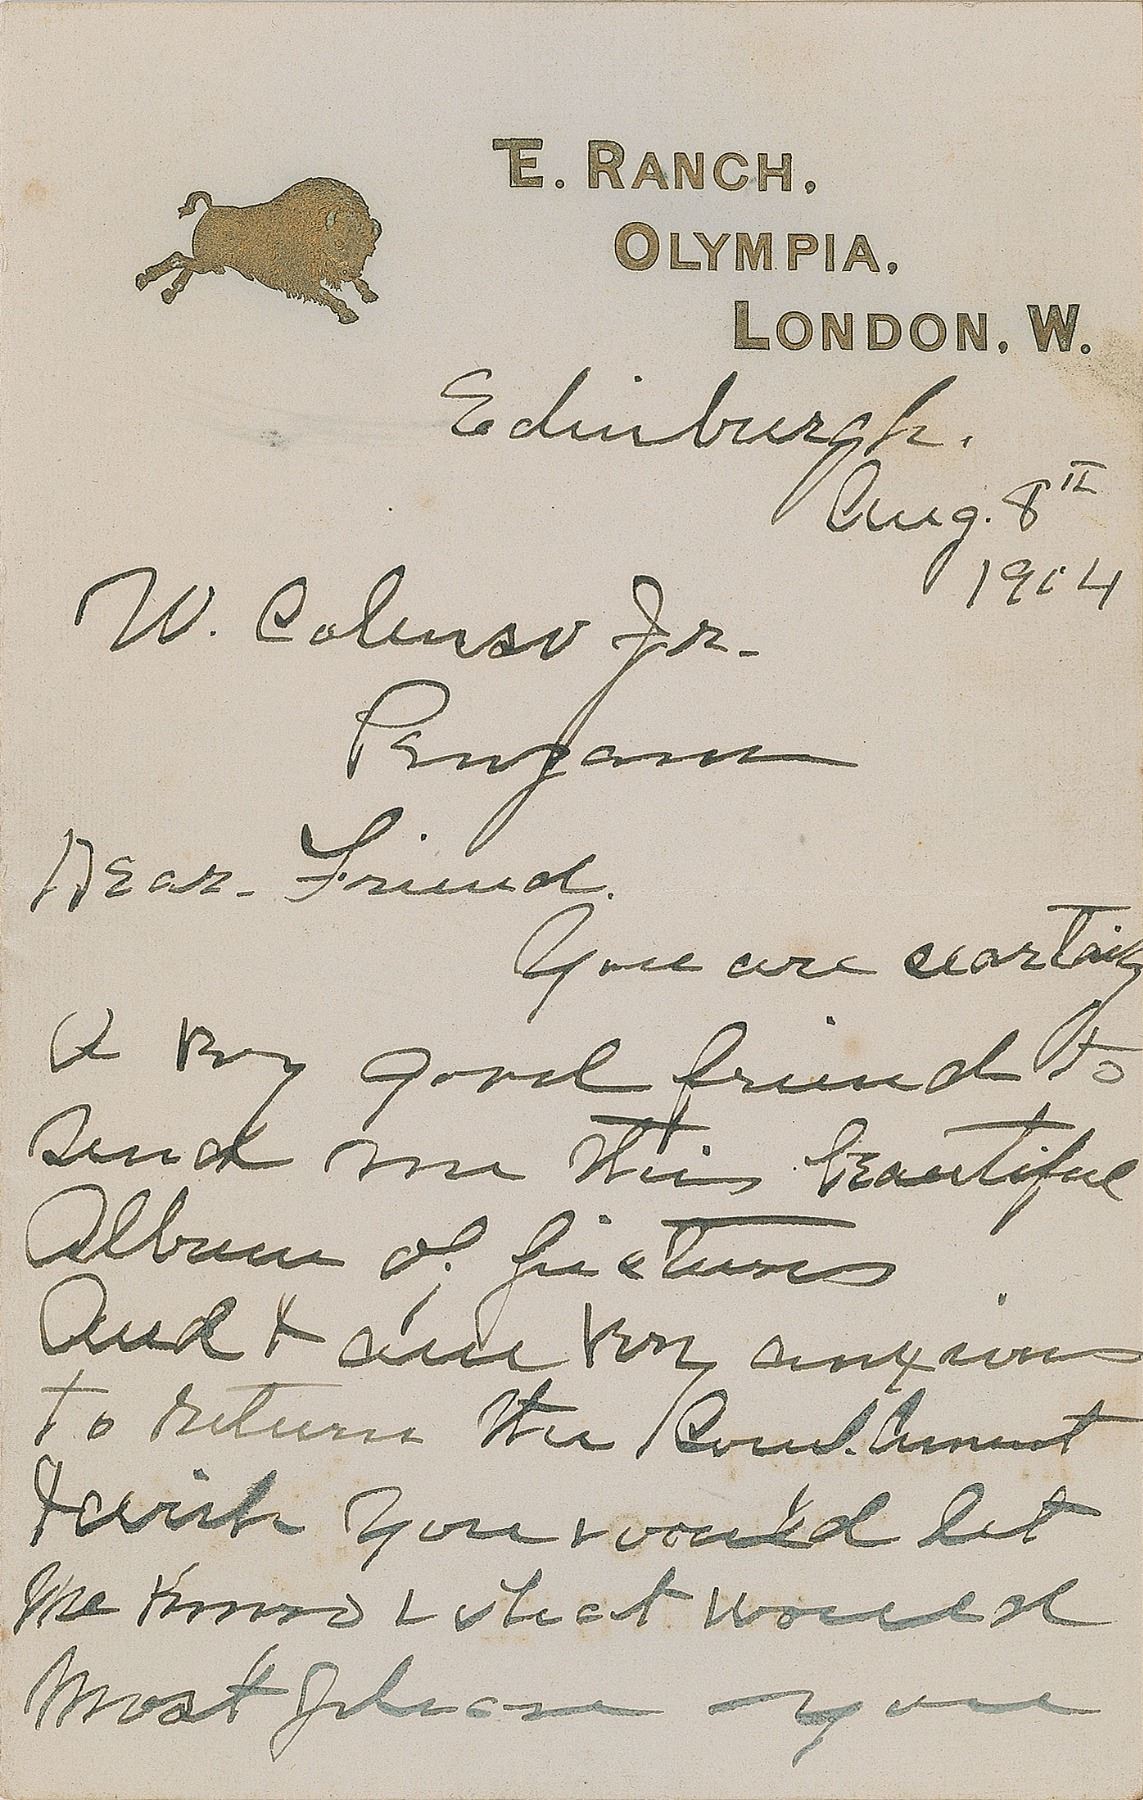 TE. RANCH.
OLYMPIA,
LONDON. W.
Edinburgh.
Aug. 8th
1904
W. Colenso Jr.
Penzance
Dear Friend.
You are certainly
a very good friend to
send me this beautiful
Album of pictures
And I am very anxious
to return the Compliment
I wish you would let
me know what would
most please you